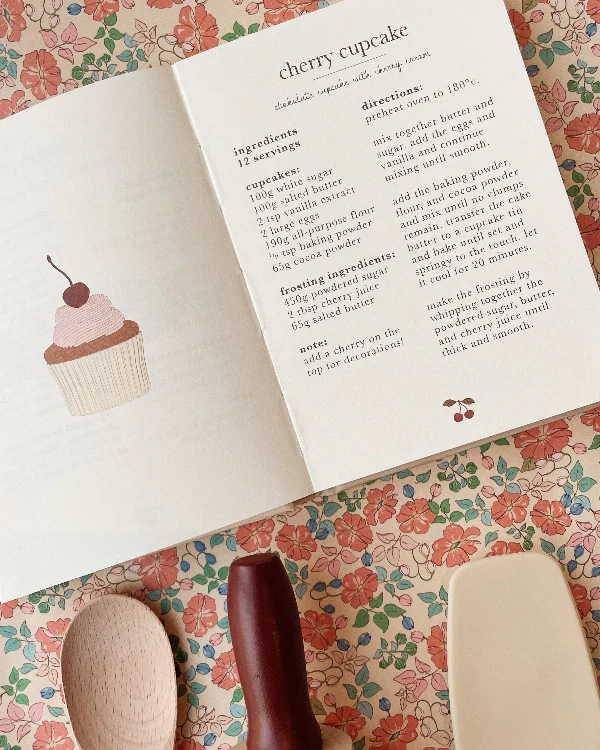 cherry cupcake
chocolate cupcake with cherry cream
ingredients
12 servings
cupcakes:
100g white sugar
100g salted butter
2 tsp vanilla extract
2 large eggs
190g all-purpose flour
½ tsp baking powder
65g cocoa powder
frosting ingredients:
450g powdered sugar
2 tbsp cherry juice
65g salted butter
note:
add a cherry on the
top for decorations!
directions:
preheat oven to 180°c.
mix together butter and
sugar, add the eggs and
vanilla and continue
mixing until smooth.
add the baking powder,
flour, and cocoa powder
and mix until no clumps
remain. transfer the cake
batter to a cupcake tin
and bake until set and
springy to the touch. let
it cool for 20 minutes.
make the frosting by
whipping together the
powdered sugar, butter,
and cherry juice until
thick and smooth.